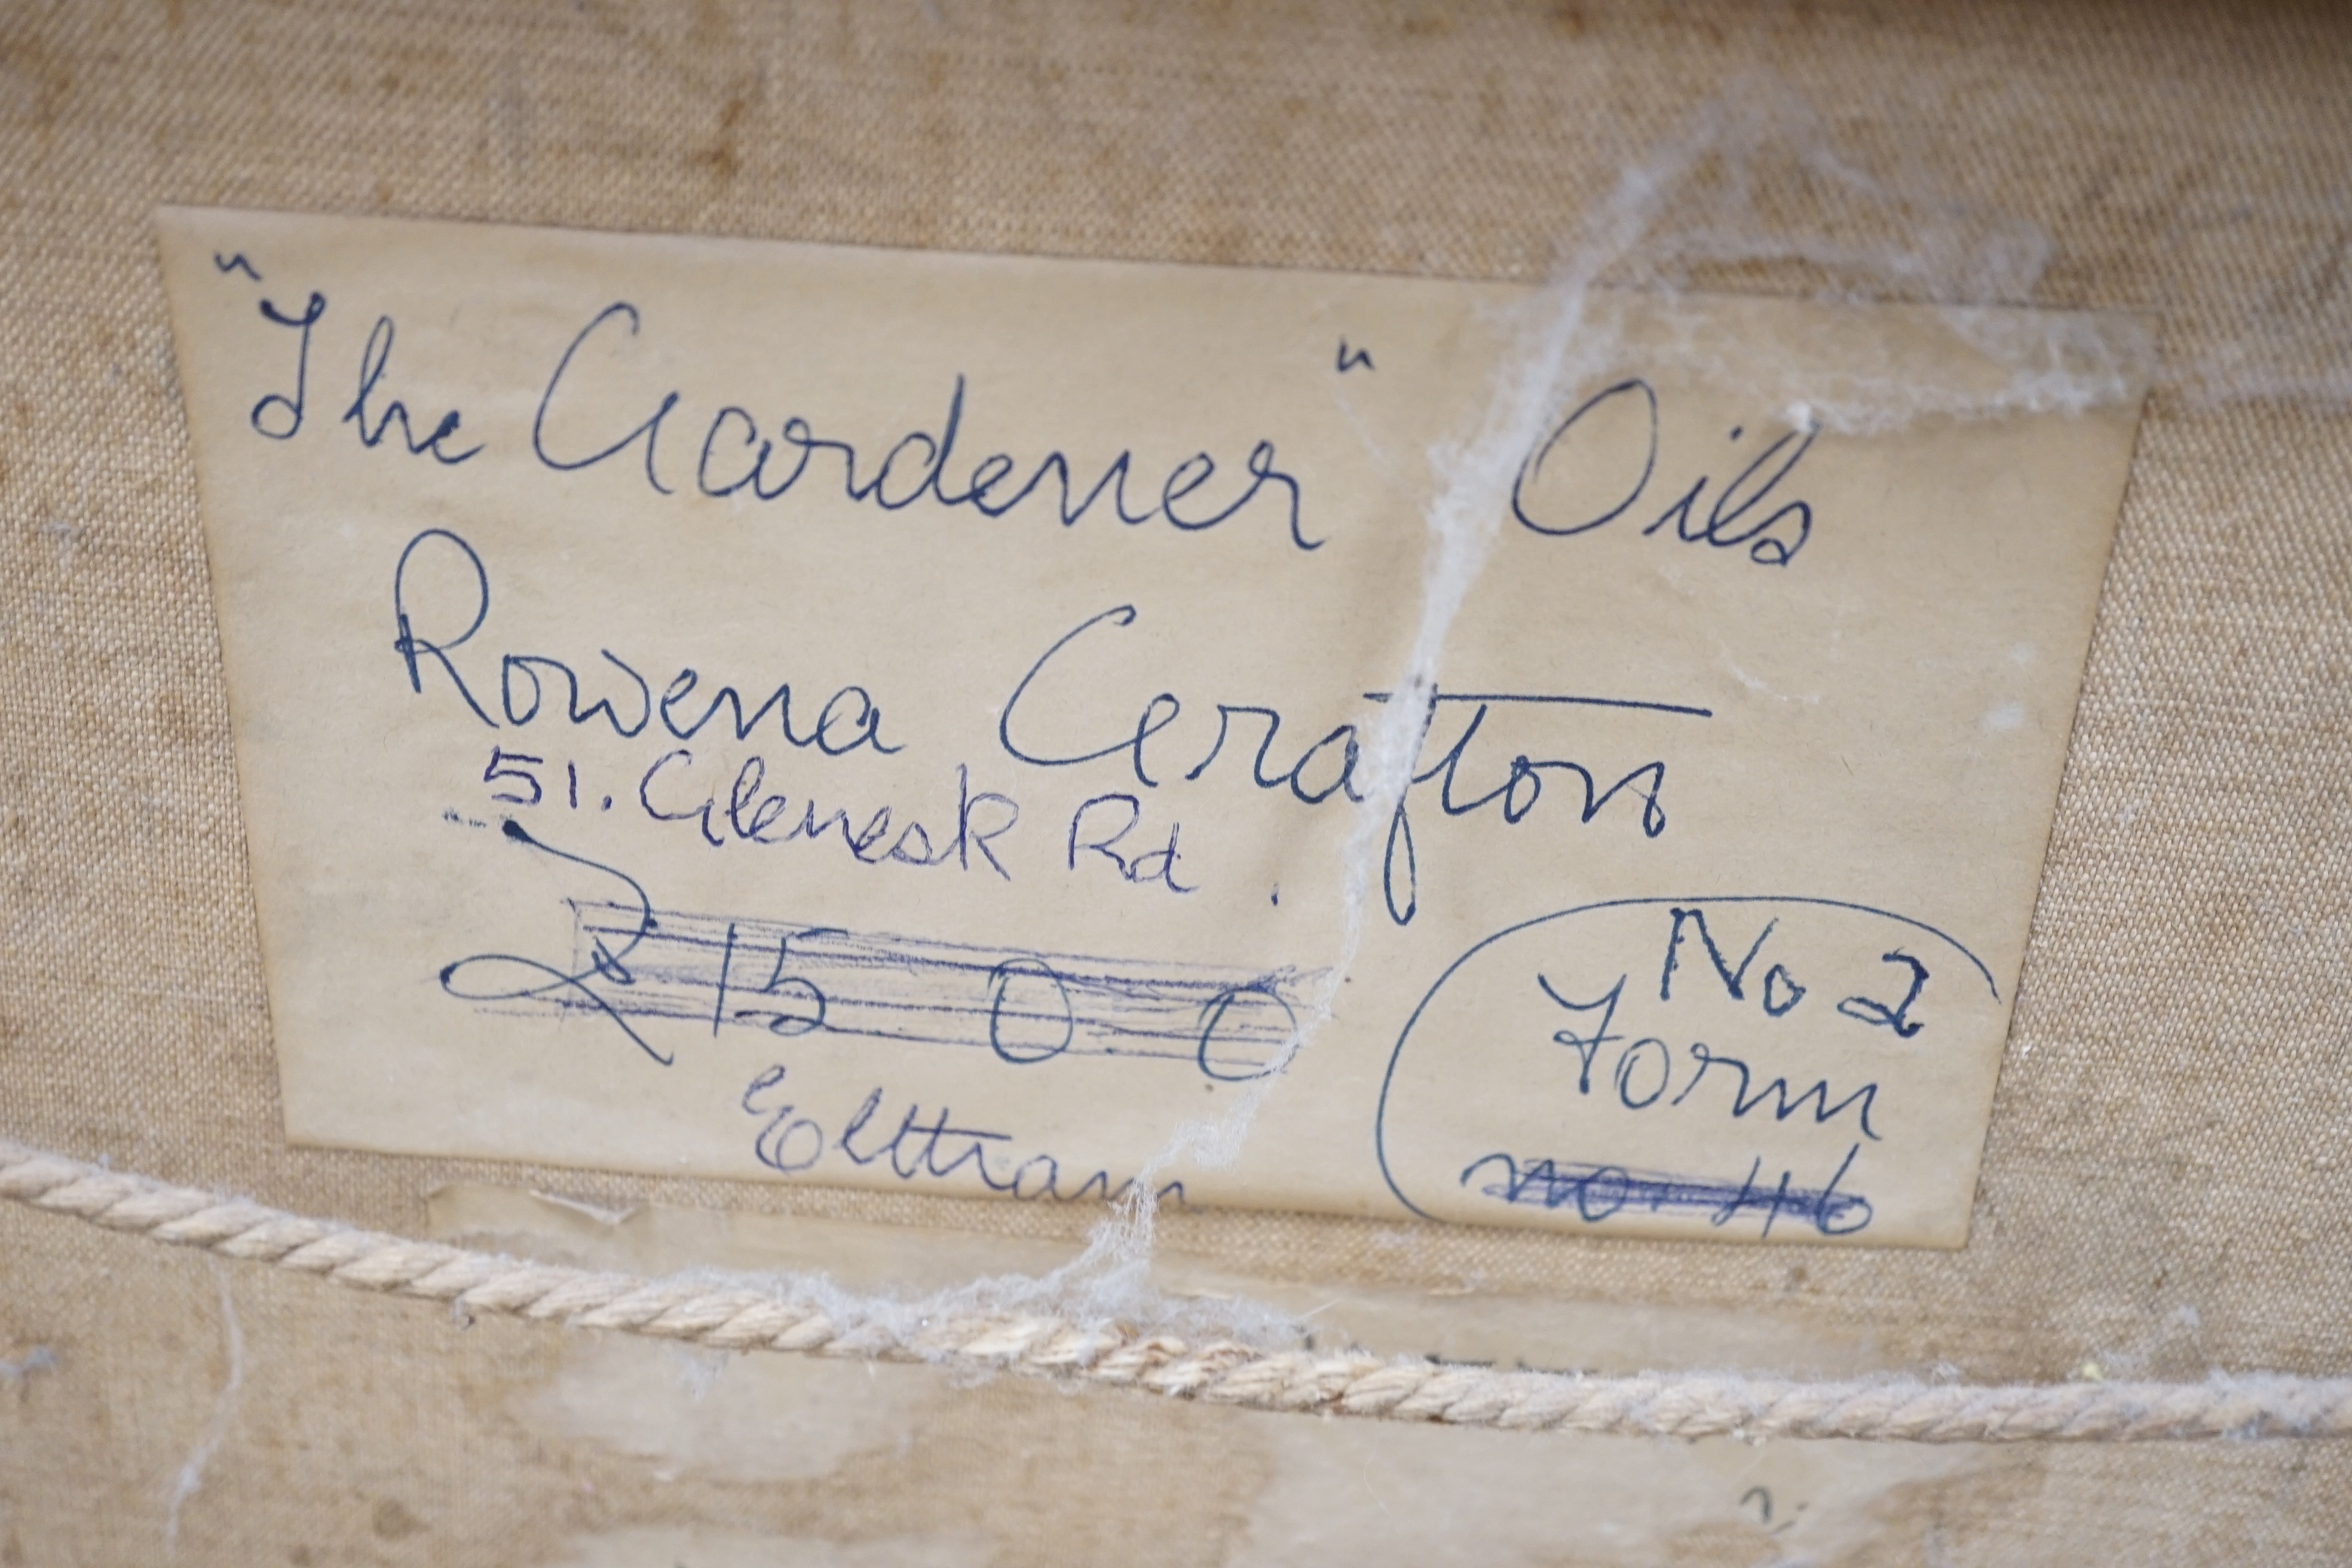 "The Gardener" Oils
Rowena Grafton
51. Glenesk Rd.
£ 15 0 0
Eltham
No 2
Form
no. 46